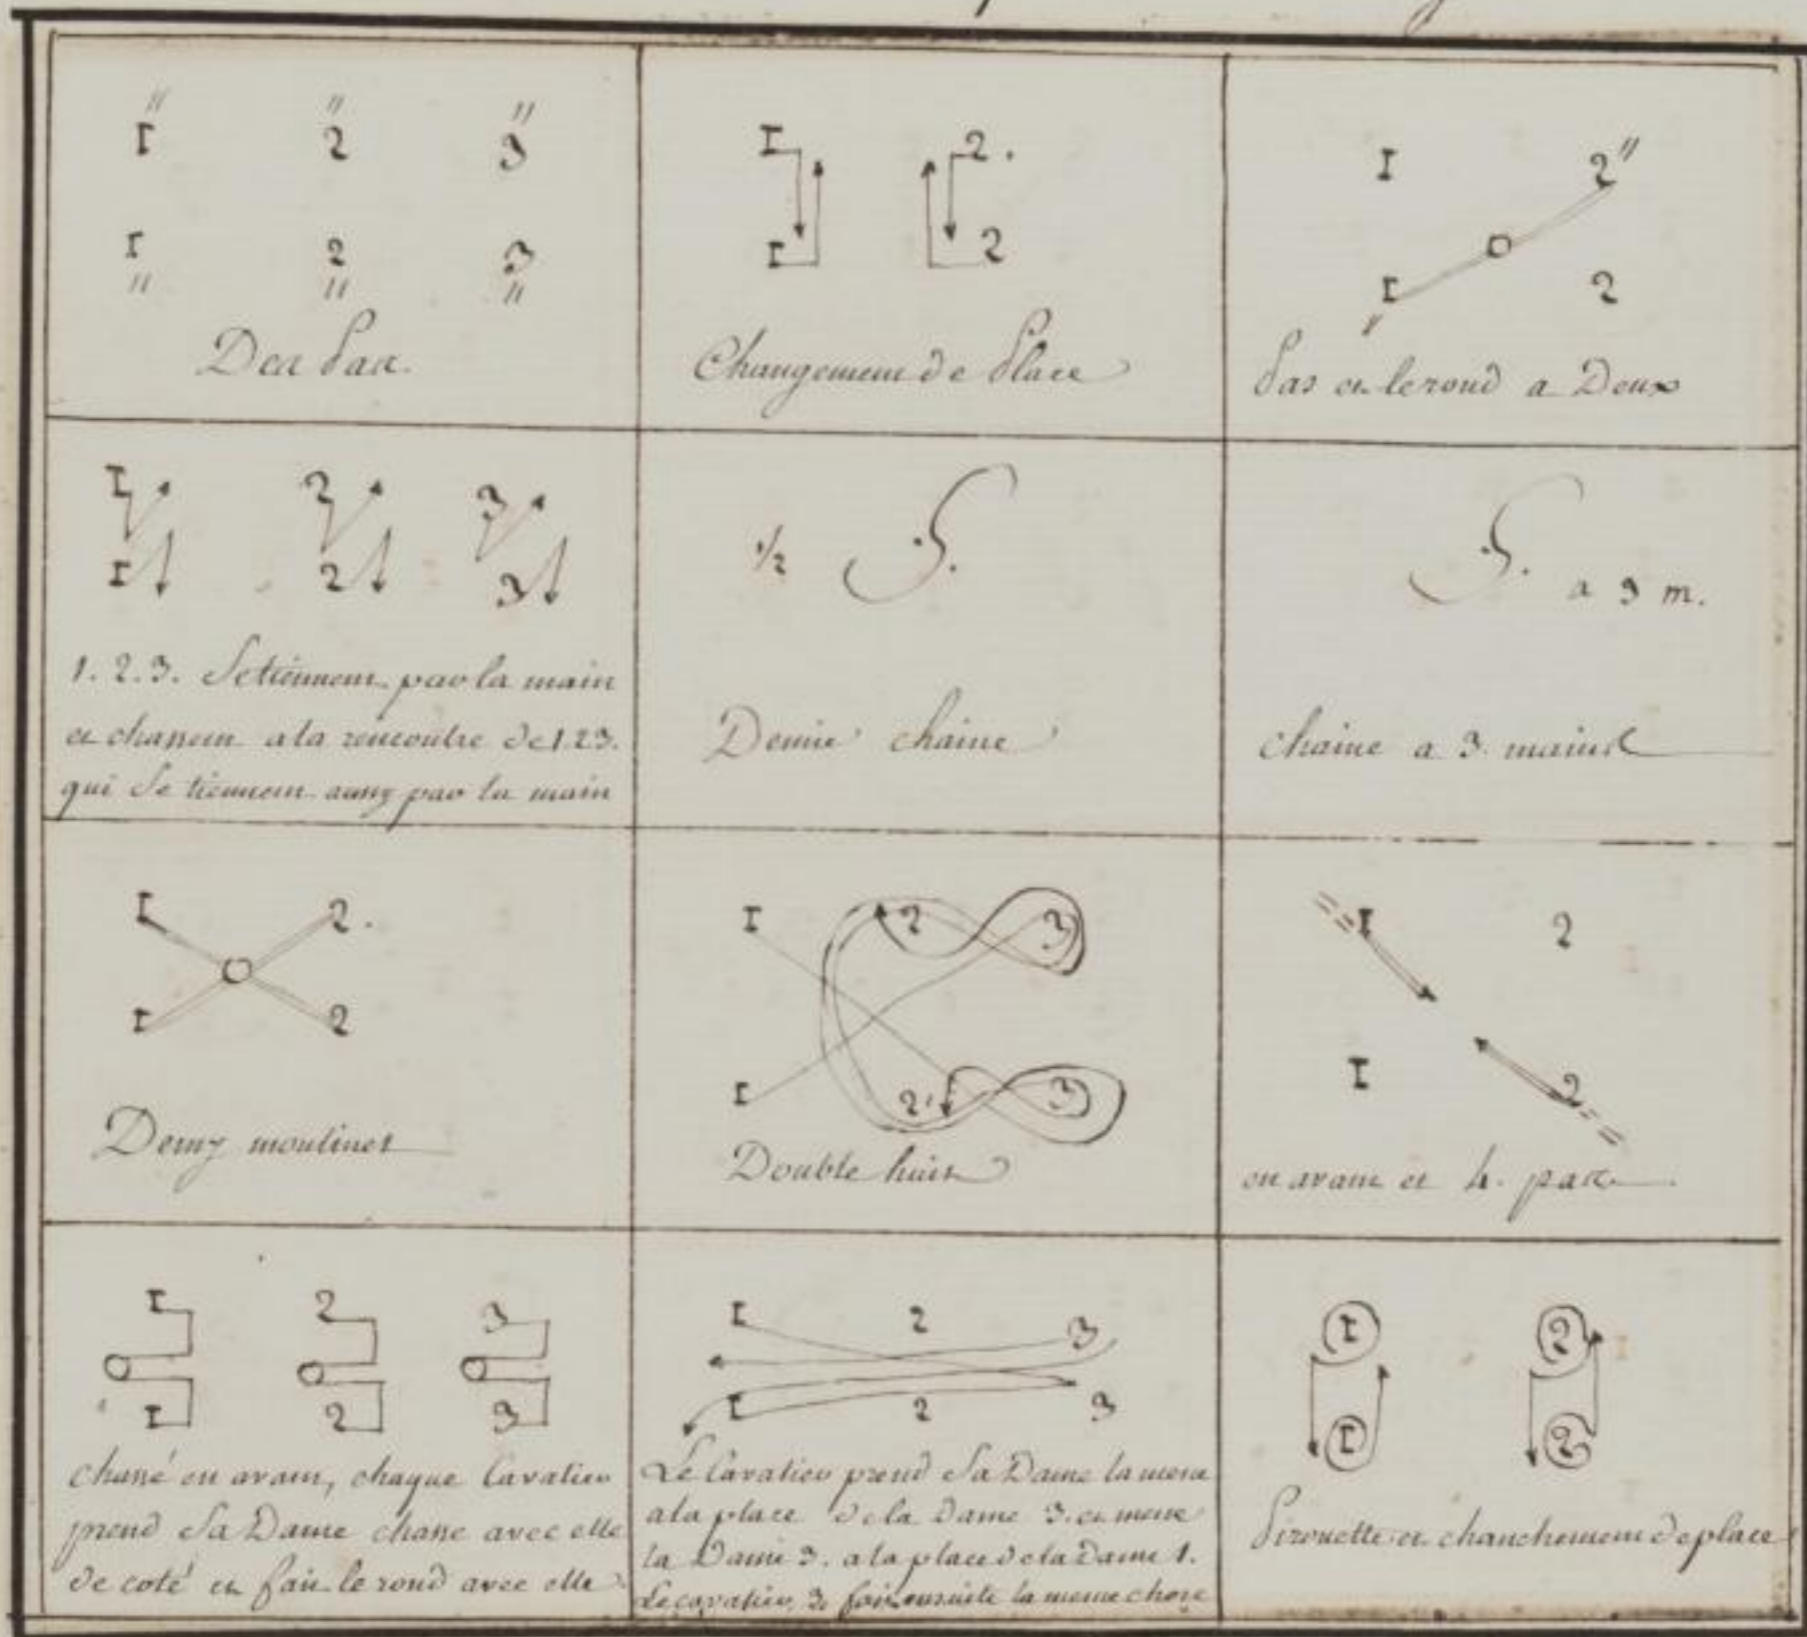 I 2 3
I 2 3
Des Pas.
I 2.
I 2
Changement de Place
I 2
I 2
Pas et le rond a Deux
I 2 3
I 2 3
1. 2. 3. Se tiennent par la main
et chassent a la rencontre de 1.2.3.
qui Se tiennent aussy par la main
1/2
Demie chaine
a 3 m.
chaine a 3. mains
I 2.
I 2
Demy moulinet
I 2 3
I 2 3
Double huit
I 2
I 2
en avant et 4. pas
I 2 3
I 2 3
chassé en avant, chaque Cavalier
prend Sa Dame chasse avec elle
de coté et fait le rond avec elle
I 2 3
I 2 3
Le Cavalier prend Sa Dame la mene
a la place de la Dame 3. et mene
la Dame 3. a la place de la Dame 1.
Le cavalier 3 fait ensuite la meme chose
I 2
I 2
Pirouette et chanchement de place